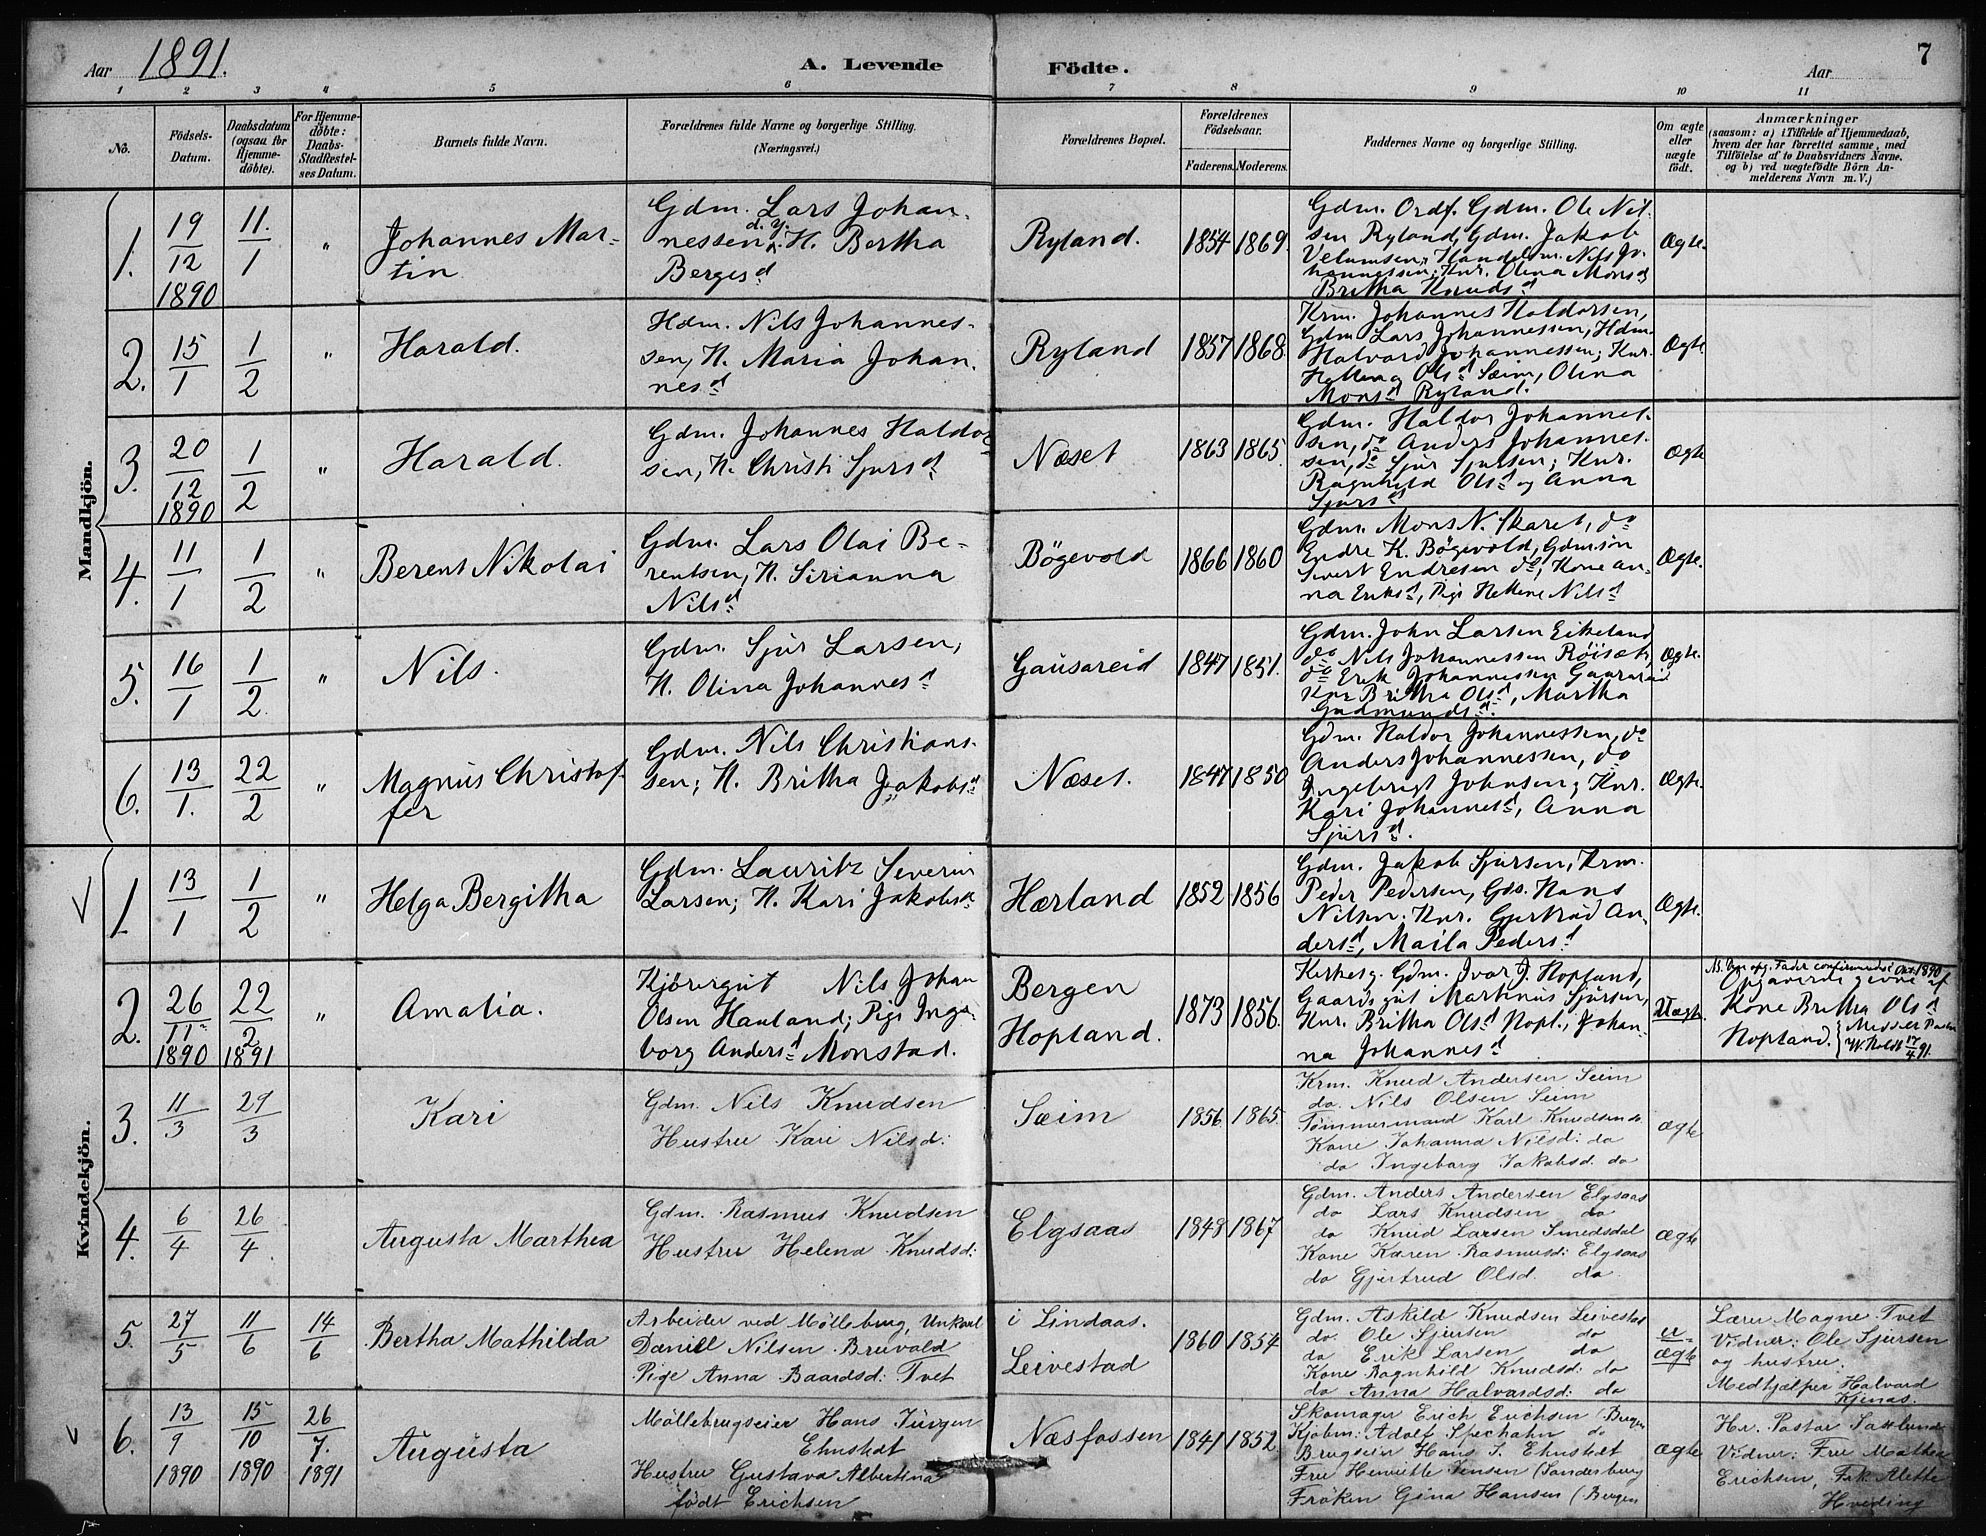 Aar 1891.
A. Levende Födte.
Aar
7
1 2 3 4 5 6 7 8 9 10 11
No.
Födsels-
Datum.
Daabsdatum
(ogsaa for
Hjemme-
döbte).
For Hjemme-
döbte:
Daabs-
Stadfæstel-
ses Datum.
Barnets fulde Navn.
Forældrenes fulde Navne og borgerlige Stilling.
(Næringsvei.)
Forældrenes Bopæl.
Forældrenes
Födselsaar.
Faderens. Moderens.
Faddernes Navne og borgerlige Stilling.
Om ægte
eller
uægte
födt.
Anmærkninger
(saasom: a) i Tilfælde af Hjemmedaab,
hvem der har forrettet samme, med
Tilföielse af to Daabsvidners Navne,
og b) ved uægtefödte Börn An-
melderens Navn m. V.)
Mandkjön.
1.
19/12 1890
11./1
"
Johannes Mar-
tin
Gdm. Lars Johan-
nessen d. y. H. Bertha
Bergesd
Ryland.
1854 1869.
Gdm. Ordf. Gdm. Ole Nil-
sen Ryland, Gdm. Jakob
Handelsm. Nils Jo-
hannessen; Knr. Olina Monsd
Britha Knudsd
Ægte.
2.
15/1
1/2
"
Harald.
Hdm. Nils Johannes-
sen, H. Maria Johan-
nesd
Ryland
1857 1868.
Krm. Johannes Haldorsen,
Gdm Lars Johannessen, Hdm.
Halvard Johannessen; Knr.
Olsd Sæim, Olina
Monsd Ryland.
Ægte
3.
20/12 1890
1/2
"
Harald.
Gdm. Johannes Haldor-
sen, H. Christi Sjursd
Næset
1863 1865.
Gdm. Haldor Johannes-
sen, do Anders Johannes-
sen, do Sjur Sjursen; Knr.
Ragnhild Olsd og Anna
Sjursd
Ægte
4.
11/1
1/2
"
Berent Nikolai
Gdm. Lars Olai Be-
rentsen, H. Sirianna
Nilsd
Bögevold
1866 1860
Gdm. Mons N. Skaret, do
Endre K. Bögevold, Gdmsön
Sivert Endresen do; Kone An-
na Eriksd, Pige Hellene Nilsd
Ægte.
5.
16/1
1/2
"
Nils.
Gdm. Sjur Larsen,
H. Olina Johannesd
Gausareid
1847 1851.
Gdm. John Larsen Eikeland
do Nils Johannessen Röisæt,
do Erik Johannessen Gausareid
Knr Britha Olsd, Martha
Gudmundsd.
Ægte.
6.
13/1.
22/2
"
Magnus Christof-
fer
Gdm. Nils Christians-
sen; H. Britha Jakobsd
Næset.
1847 1850
Gdm. Haldor Johannessen, do
Anders Johannessen, do
Ingebrigt Johnsen; Knr.
Kari Johannesd, Anna
Sjursd.
Ægte.
Kvindekjön.
1.
13/1
1/2
"
Helga Bergitha
Gdm. Lauritz Severin
Larsen; H. Kari Jakobsd
Hærland
1852 1856
Gdm. Jakob Sjursen, Krm.
Peder Pedersen, Gds. Hans
Nilsen; Knr. Gjertrud An-
dersd, Maila Pedersd
Ægte.
2.
26/11 1890
22/2 1891
"
Amalia.
Kjöregut Nils Johan
Olsen Hauland; Pige Inge-
borg Andersd Monstad.
Bergen
Hopland.
1873 1856.
Kirkesg. Gdm. Ivar J. Hopland,
Gaardsgut Martinus Sjursen,
Knr. Britha Olsd Hopl., Johan-
na Johannesd
Uægte.
Ns. Den opg. Fader confirmeret i Oct. 1890
Opgaverne givne af
Kone Britha Olsd
Hopland.
Meddelt Pastor
W. Koldt 17/4 91.
3.
11/3
29/3
Kari
Gdm. Nils Knudsen
Hustru Kari Nilsd:
Sæim
1856 1865.
Krm. Knud Andersen Seim
do. Nils Olsen Seim
Tömmermand Karl Knudsen do
Kone Johanna Nilsd: do
do Ingeborg Jakobsd. do
ægte
4.
6/4
26/4.
Augusta Marthea
Gdm. Rasmus Knudsen
Hustru Helena Knudsd:
Elgsaas
1848 1867
Gdm. Anders Andersen Elgsaas
do Lars Knudsen do
do Knud Larsen Smedsdal
Kone Karen Rasmusd: Elgsaas
do Gjertrud Olsd. do
ægte
5.
27/5
11/6
14/6
Bertha Mathilda
Arbeider ved Möllebrug, Unkarl
Daniel Nilsen Bruvold
Pige Anna Baardsd: Tvet
i Lindaas.
Leivestad
1860 1854
Gdm. Askild Knudsen Leivestad
do. Ole Sjursen do
do Erik Larsen do
Kone Ragnhild Knudsd: do
do Anna Halvardsd: do
u-
ægte
Lærer Magne Tvet
Vidner: Ole Sjursen
og hustru.
Medhjælper Halvard
Kjenas.
6.
13/9 1890
15/10 1890
26/7. 1891
Augusta
Möllebrugseier Hans Jürgen
Ehmstedt
Hustru Gustava Albertina
födt Erichsen
Næsfossen
1841 1852.
Skomager Erich Erichsen (Bergen
Kjöbm: Adolf Spechahn do
Brugseier Hans J. Ehmstedt
Frue Henriette Jensen (Sonderburg
Fröken Gina Hansen (Bergen
ægte
Hr. Pastor
Vidner: Frue Mathea
Erichsen, Frk. Alette
Hveding